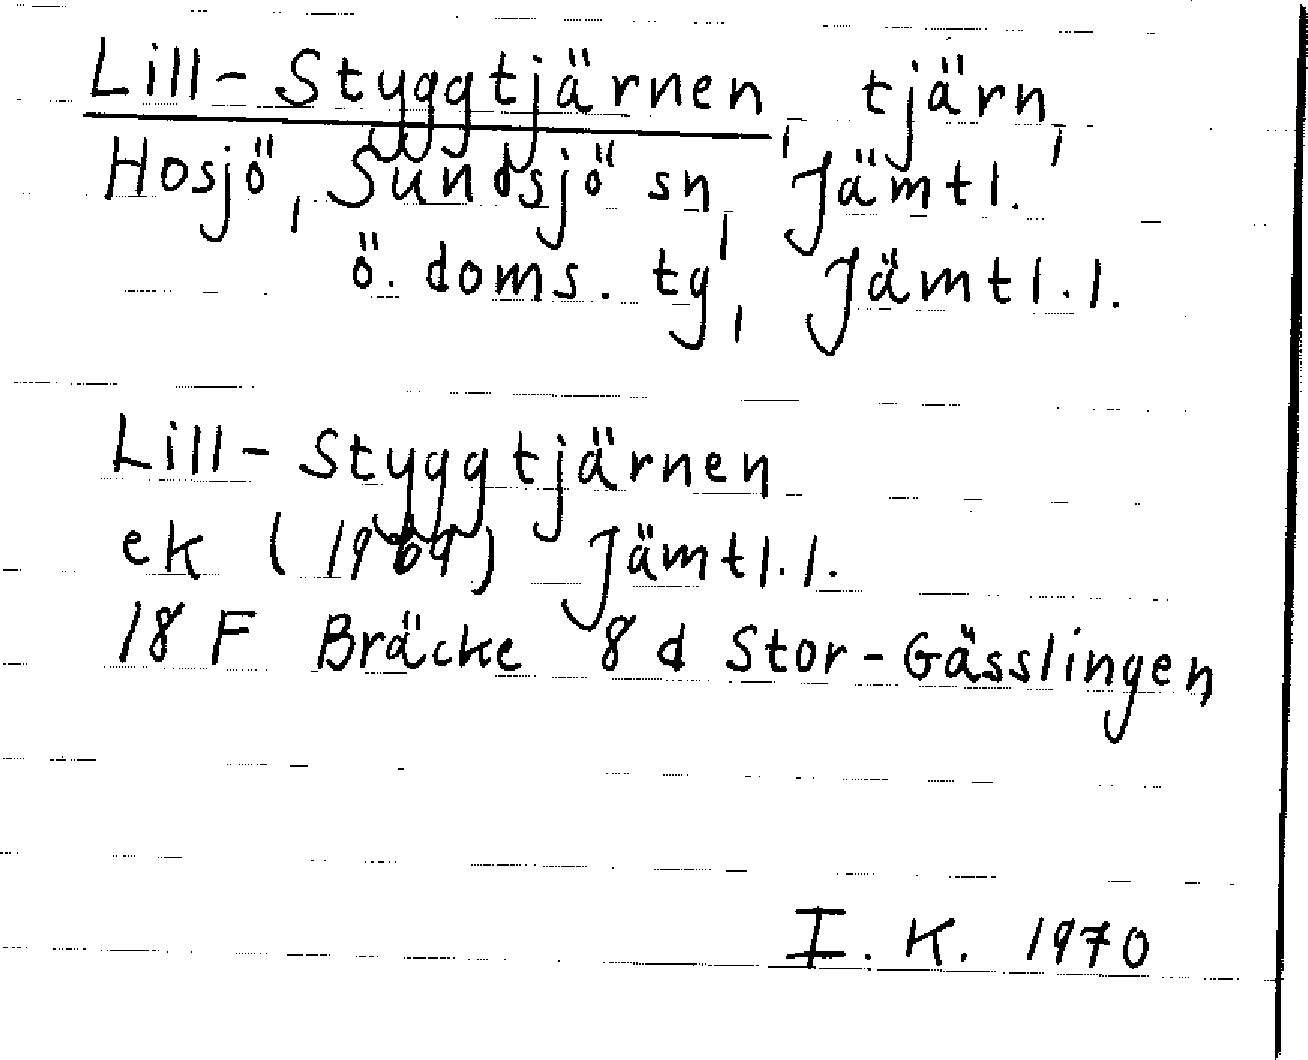 Lill-Styggtjärnen, tjärn,
Hosjö, Sundsjö sn, Jämtl.
ö. doms. tg, Jämtl.l.
Lill-Styggtjärnen
ek (1969) Jämtl.l.
18 F Bräcke 8 d Stor-Gässlingen
I. K. 1970